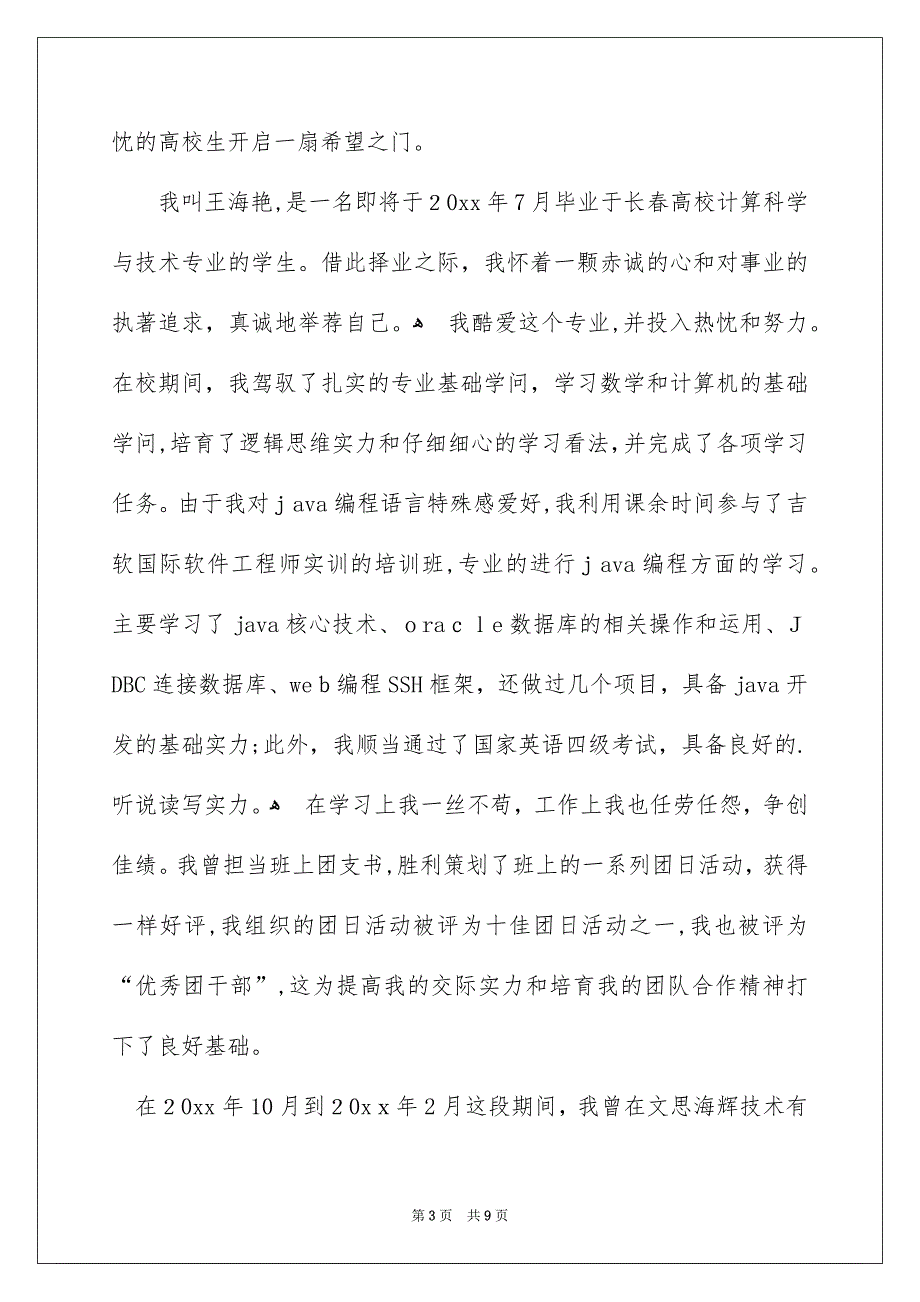 忱的高校生开启一扇希望之门。
我叫王海艳,是一名即将于２0xx 年７月毕业于长春高校计算科学
与技术专业的学生。借此择业之际，我怀着一颗赤诚的心和对事业的
执著追求，真诚地举荐自己。ﻫ 我酷爱这个专业,并投入热忱和努力。
在校期间，我驾驭了扎实的专业基础学问，学习数学和计算机的基础
学问,培育了逻辑思维实力和仔细细心的学习看法,并完成了各项学习
任务。由于我对ｊava 编程语言特殊感爱好,我利用课余时间参与了吉
软国际软件工程师实训的培训班,专业的进行ｊava 编程方面的学习。
主要学习了 java 核心技术、ｏraｃｌe 数据库的相关操作和运用、Ｊ
DBC 连接数据库、weｂ编程 SSH 框架，还做过几个项目，具备 java 开
发的基础实力;此外，我顺当通过了国家英语四级考试，具备良好的.
听说读写实力。ﻫ 在学习上我一丝不苟，工作上我也任劳任怨，争创
佳绩。我曾担当班上团支书,胜利策划了班上的一系列团日活动，获得
一样好评,我组织的团日活动被评为十佳团日活动之一,我也被评为
“优秀团干部”,这为提高我的交际实力和培育我的团队合作精神打
下了良好基础。
在２0xx 年 10 月到２0xｘ年２月这段期间，我曾在文思海辉技术有
第 3 页 共 9 页